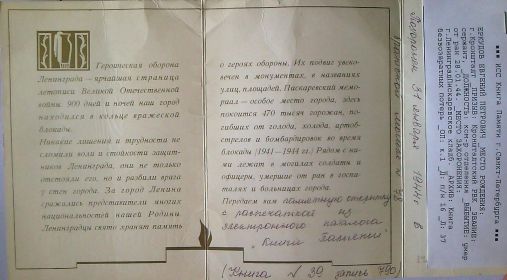 Героическая оборона
Ленинграда — ярчайшая страница
летописи Великой Отечественной
войны. 900 дней и ночей наш город
находился в кольце вражеской
блокады.
Никакие лишения и трудности не
сломили воли и стойкости защит-
ников Ленинграда, они не только
отстояли его, но и разбили врага
у стен города. За город Ленина
сражались представители многих
национальностей нашей Родины
Ленинградцы свято хранят память
о героях обороны. Их подвиг увеко-
вечен в монументах, в названиях
улиц, площадей. Пискаревский мемо-
риал — особое место города, здесь
покоится 470 тысяч горожан, по-
гибших от голода, холода, артоб-
стрелов и бомбардировок во время
блокады (1941—1944 гг.) Рядом с ни-
ми лежат в могилах солдаты и
офицеры, умершие от ран в госпи-
талях и больницах города.
Передаем вам памятную страницу
с распечаткой из
электронного каталога
"Книги Памяти"
(Книга N 39 запись 790)
Похоронен 31 января 1944г. в
могиле N 38
*** ИСС Книга Памяти г.Санкт-Петербурга ***
ЕРКУДОВ ЕВГЕНИЙ ПЕТРОВИЧ МЕСТО РОЖДЕНИЯ:
г.Кронштадт ПРИЗВАН: Кронштадтский РВК ЗВАНИЕ:
сержант ДОЛЖНОСТЬ: ком.отделения ВЫБЫТИЕ: умер
от ран 28.01.44 МЕСТО ЗАХОРОНЕНИЯ:
г.Ленинград Пискаревское кладб. АРХИВ: Книга
безвозвратных потерь